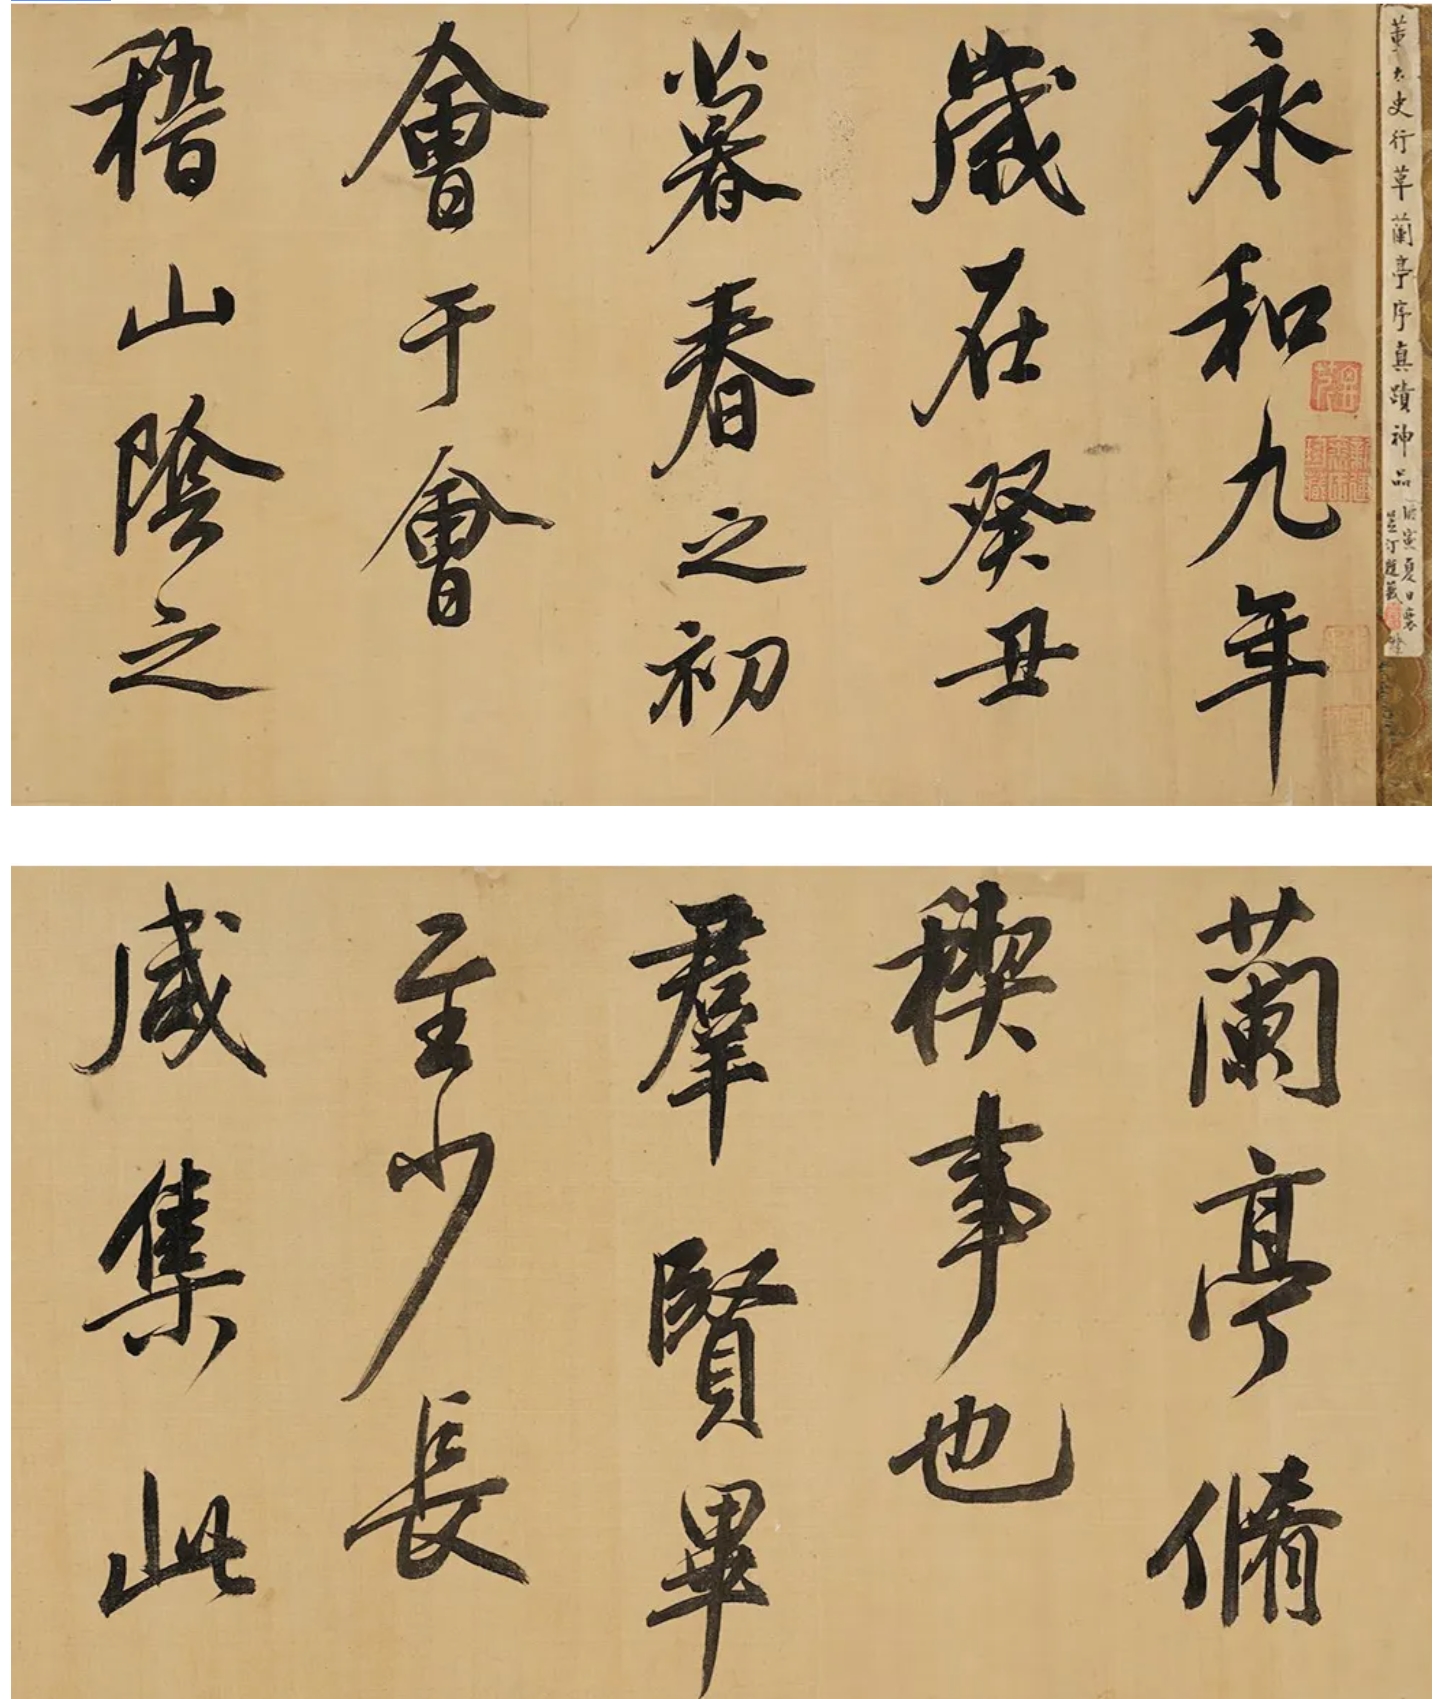 董太史行草蘭亭序真蹟神品
永和九年
歲在癸丑
暮春之初
會于會
稽山陰之
蘭亭脩
稧事也
羣賢畢
至少長
咸集此